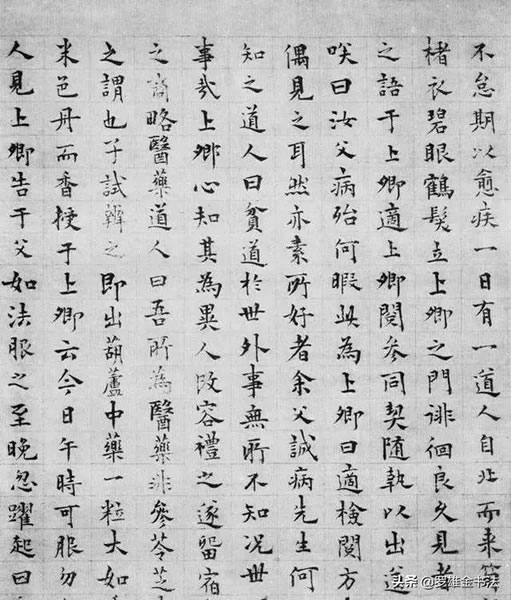 不怠期以愈疾一日有一道人自北而来箬
楮衣碧眼鶴髮立上卿之門徘徊良久見者
之語于上卿適上卿閱參同契随執以出道
咲曰汝父病殆何暇此為上卿曰適檢閱方
偶見之耳然亦素所好者余父誠病先生何
知之道人曰貧道於世外事無所不知况世
事哉上卿心知其為異人改容禮之遂留宿
之略醫藥道人曰吾所為醫藥非參苓芝
之謂也子試之即出葫蘆中藥一粒大如
米色丹而香授于上卿云今日午時可服勿
人見上卿告于父如法服之至晚忽躍起曰
头条 @罗雄金书法